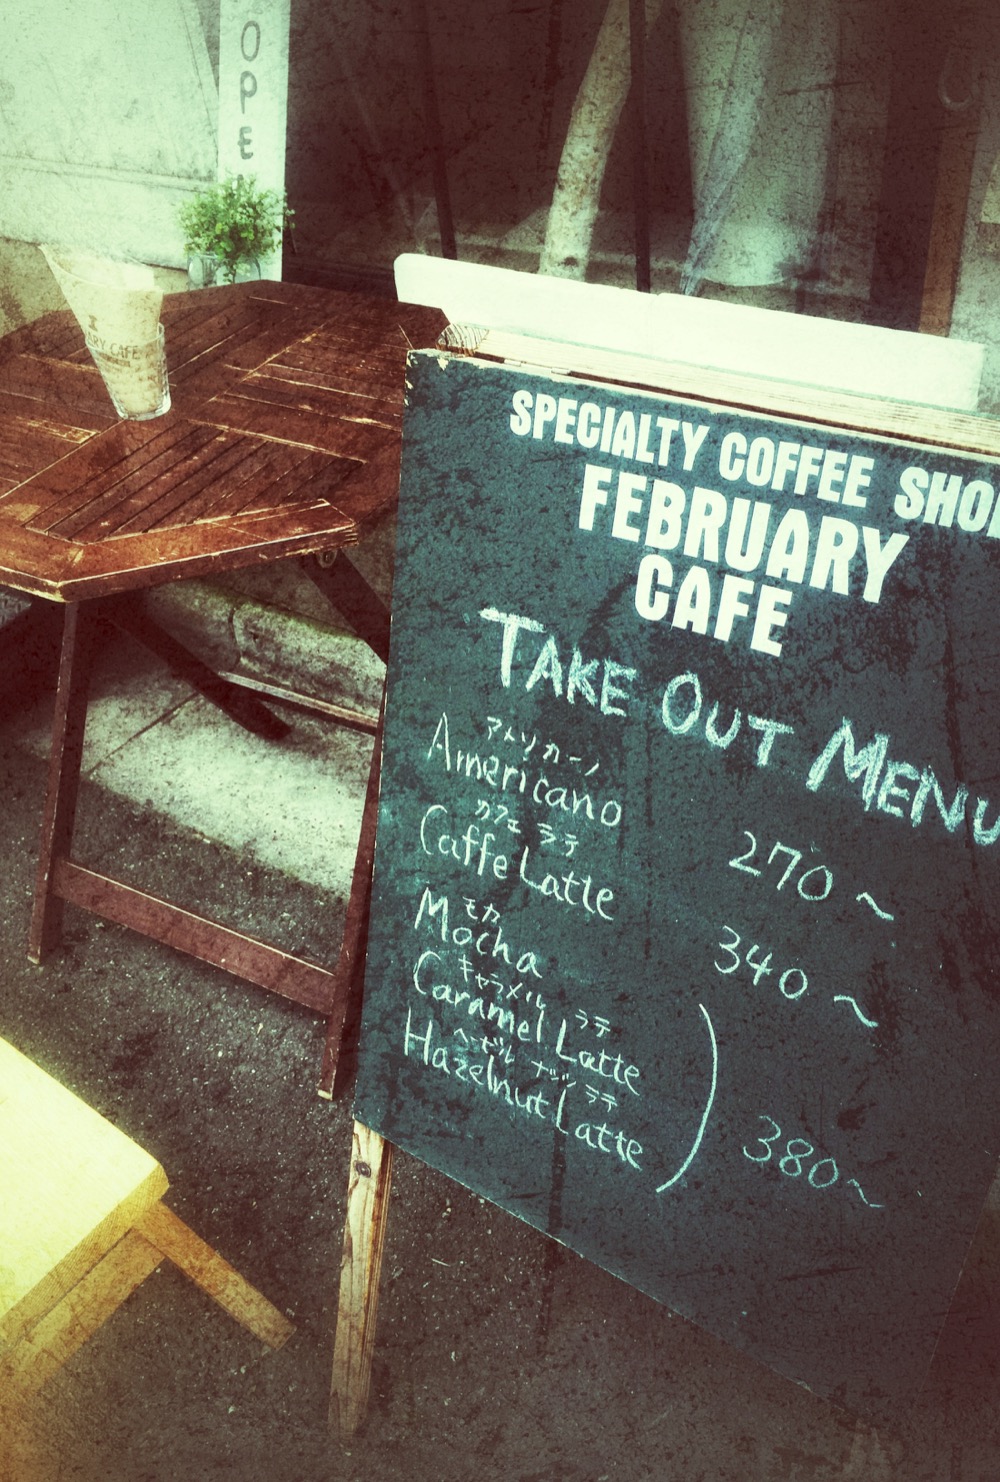 OPE
RY CAFE
SPECIALTY COFFEE SHO
FEBRUARY
CAFE
TAKE OUT MENU
アメリカーノ
Americano
270～
カフェ ラテ
Caffe Latte
340～
モカ
Mocha
キャラメル ラテ
Caramel Latte
ヘーゼル ナッツ ラテ
Hazelnut Latte
380～